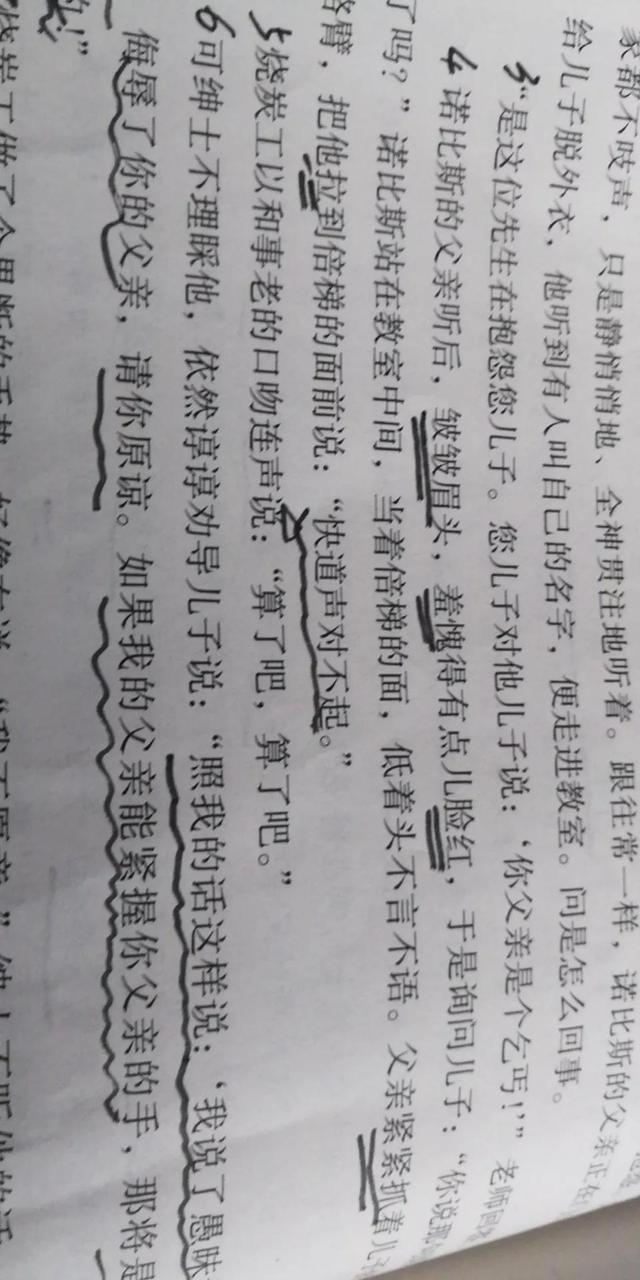 家都不吱声，只是静悄悄地、全神贯注地听着。跟往常一样，诺比斯的父亲正在
给儿子脱外衣，他听到有人叫自己的名字，便走进教室。问是怎么回事。
3“是这位先生在抱怨您儿子。您儿子对他儿子说：‘你父亲是个乞丐！’”老师回
4诺比斯的父亲听后，皱皱眉头，羞愧得有点儿脸红，于是询问儿子：“你说那
了吗？”诺比斯站在教室中间，当着倍梯的面，低着头不言不语。父亲紧紧抓着儿
胳臂，把他拉到倍梯的面前说：“快道声对不起。”
5烧炭工以和事老的口吻连声说：“算了吧，算了吧。”
6可绅士不理睬他，依然谆谆劝导儿子说：“照我的话这样说：‘我说了愚昧
侮辱了你的父亲，请你原谅。如果我的父亲能紧握你父亲的手，那将是
的！”
烧炭工做了个果断的手势，好像在说：“我不愿意。”绅士不听他的话